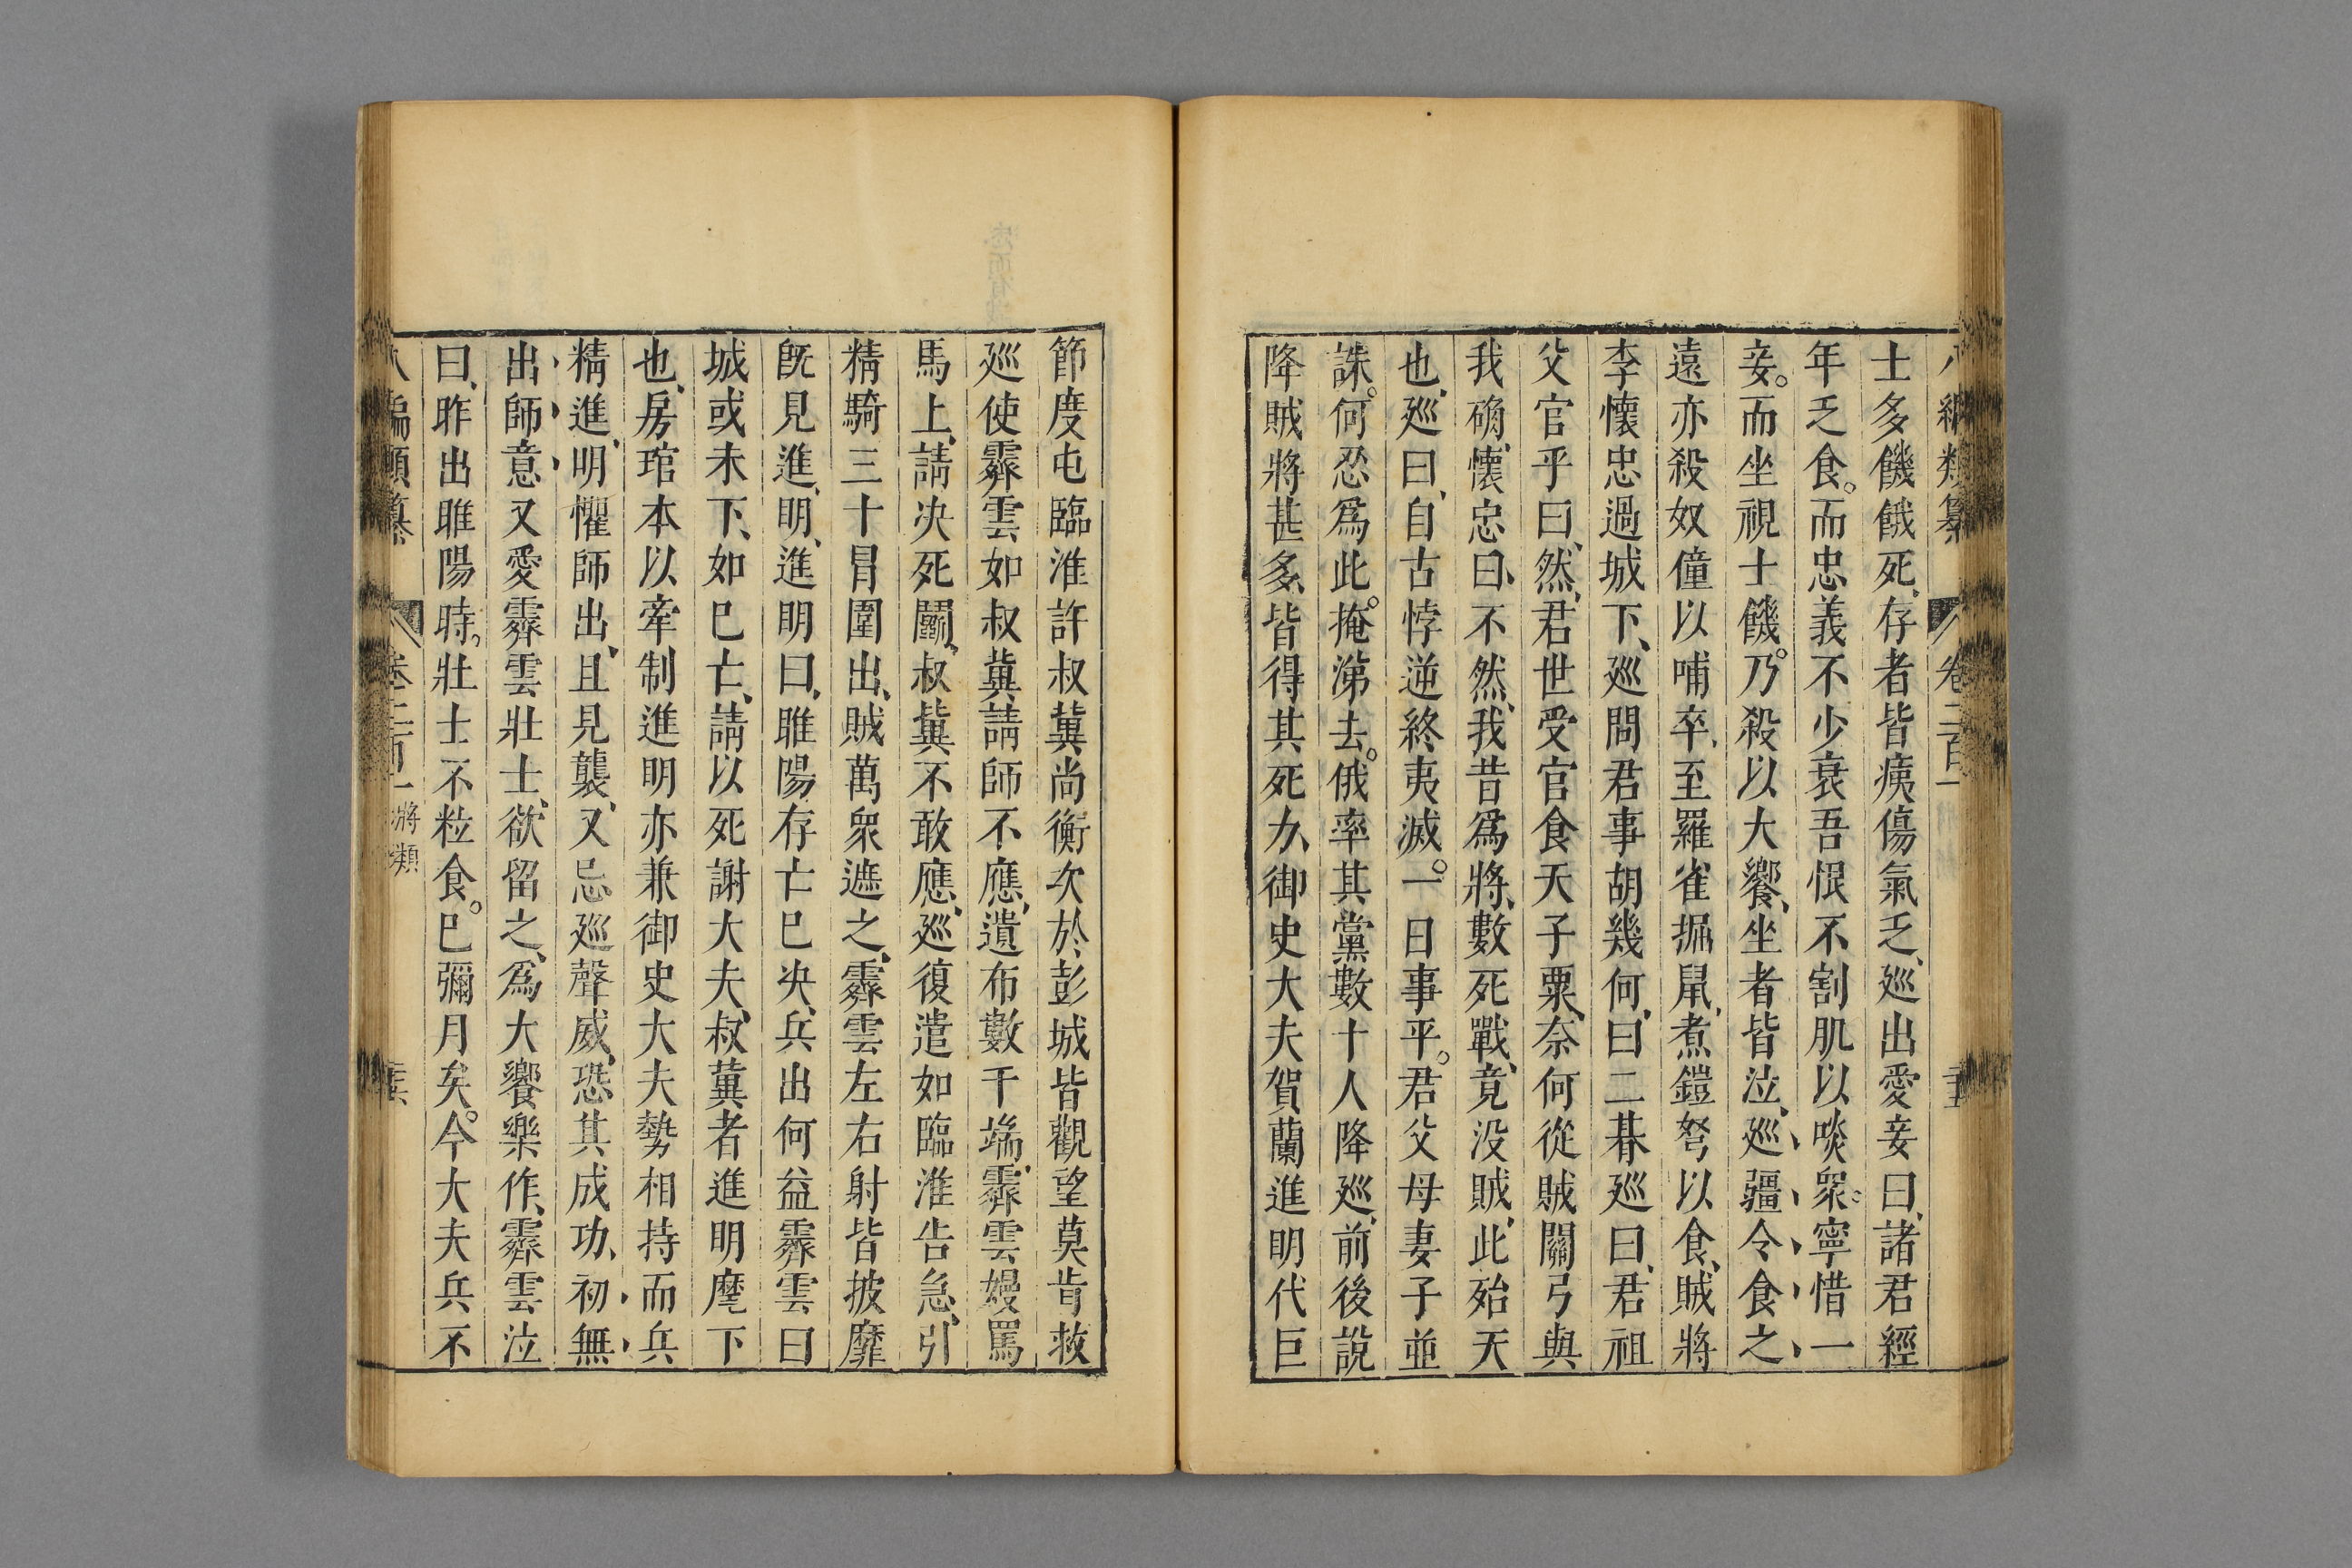 八編類纂 卷二百一
士多饑餓死、存者皆痍傷氣乏、巡出愛妾曰、諸君經
年乏食。而忠義不少衰吾恨不割肌以啖衆。寧惜一
妾。而坐視士饑。乃殺以大饗、坐者皆泣、巡疆令食之
遠亦殺奴僮以哺卒、至羅雀掘鼠、煮鎧弩以食、賊將
李懷忠過城下、巡問君事胡幾何、曰二朞巡曰、君祖
父官乎曰、然、君世受官食天子粟、奈何從賊關弓與
我确、懷忠曰、不然、我昔爲將、數死戰、竟没賊、此殆天
也、巡曰、自古悖逆終夷滅。一日事平。君父母妻子並
誅。何忍爲此。掩涕去。俄率其黨數十人降巡、前後說
降賊將甚多、皆得其死力、御史大夫賀蘭進明代巨
節度屯臨淮許叔冀尚衡次於彭城皆觀望莫肯救
巡使霽雲如叔冀請師不應、遺布數千端、霽雲嫚罵
馬上、請决死鬬、叔冀不敢應、巡復遣如臨淮告急、引
精騎三十冒圍出、賊萬衆遮之、霽雲左右射皆披靡
旣見進、明、進明曰、睢陽存亡已决、兵出何益霽雲曰
城或未下、如已亡、請以死謝大夫、叔冀者進明麾下
也、房琯本以牽制進明亦兼御史大夫勢相持而兵
精進、明懼師出、且見襲、又忌巡聲威、恐其成功、初無
出師意又愛霽雲壯士、欲留之、爲大饗樂作、霽雲泣
曰、昨出睢陽時。壯士不粒食。已彌月矣。今大夫兵不
八編類纂 卷二百一 將類